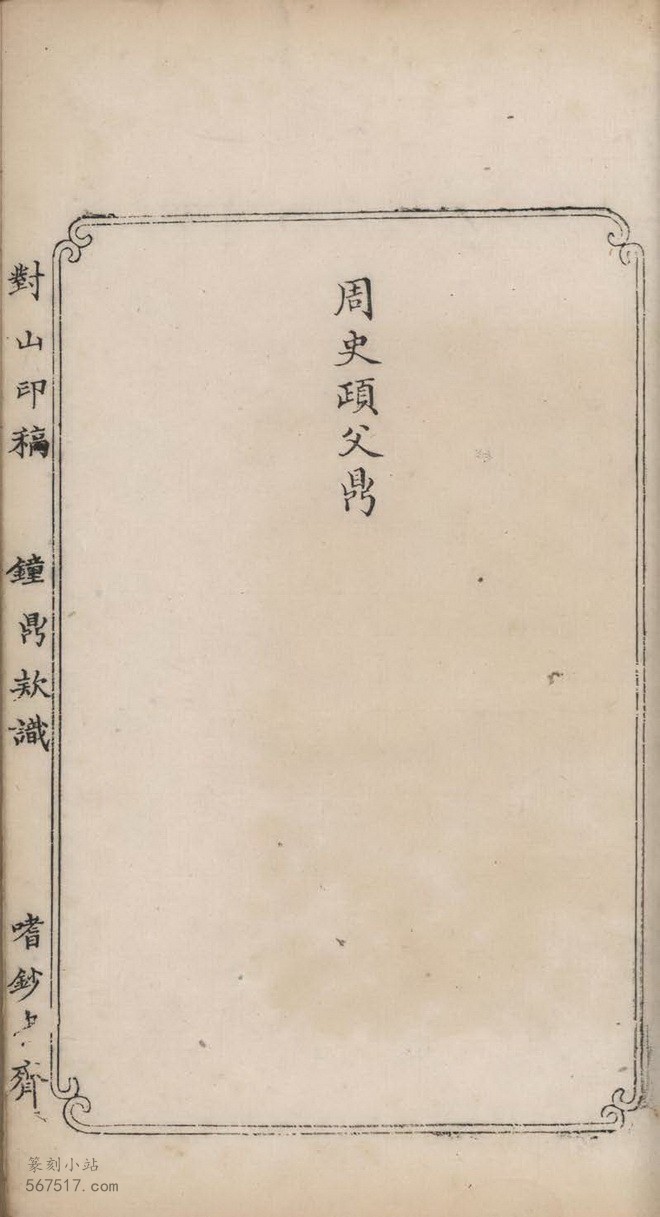 周史頙父鼎
對山印稿 鐘鼎款識 嗜鈔 齋
篆刻小站
567517.com